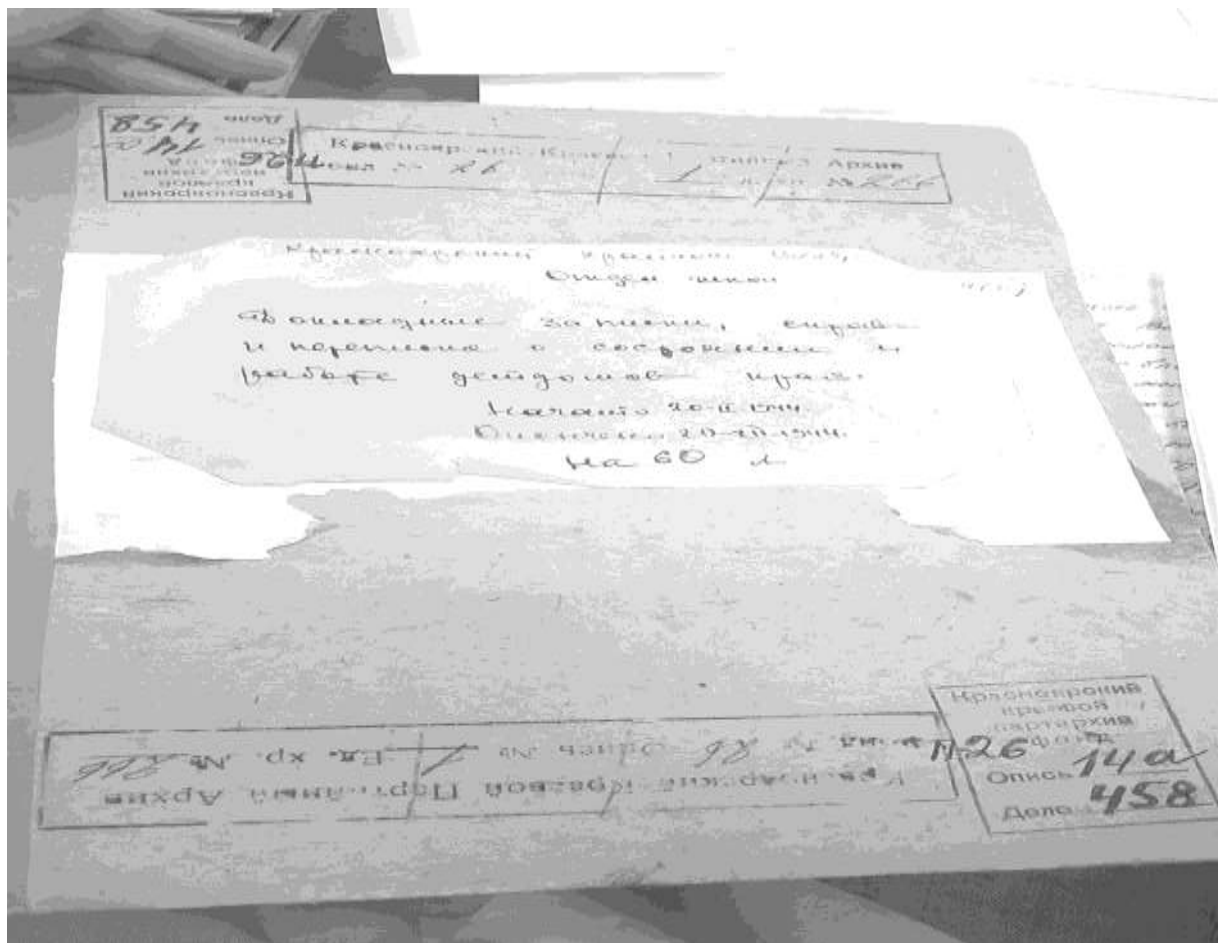 Красноярский Краевой Архив
№ 26 1 № 266
Красноярский
краевой
партархив
фонд П-26
Опись 14а
Дело 458
Красноярский краевой
Отдел школ
Докладные записки,
и переписка о состоянии и
работе детдомов края.
Начато 20-II-1944.
Окончено 20-XII-1944.
на 60 л
Красноярский
краевой
партархив
фонд
П-26
Опись 14а
Дело 458
Красноярский Краевой Партийный Архив
Фонд № 26 Опись № 1 Ед. хр. № 266